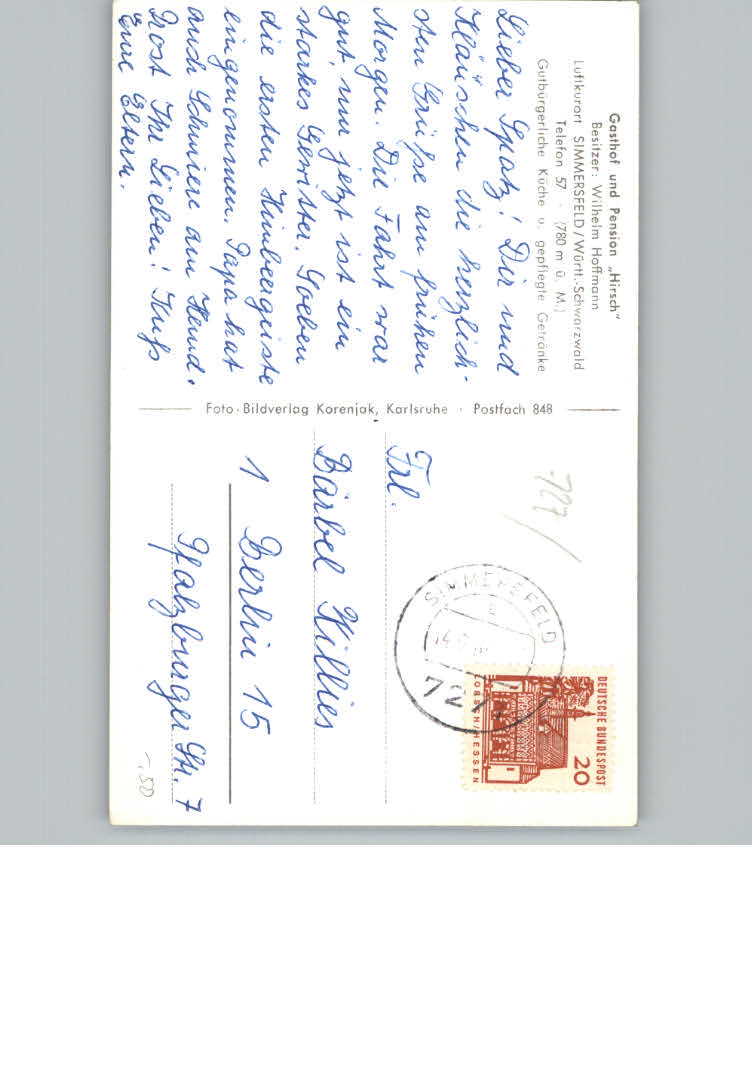 Gasthof und Pension „Hirsch"
Besitzer: Wilhelm Hoffmann
Luftkurort SIMMERSFELD/Württ.-Schwarzwald
Telefon 57 · (780 m ü. M.)
Gutbürgerliche Küche u. gepflegte Getränke
Lieber Spatz! Dir und
Kläuschen die herzlich-
sten Grüße am frühen
Morgen. Die Fahrt war
gut, nur jetzt ist ein
starkes Gewitter. Soeben
die ersten Himbeergeiste
eingenommen. Papa hat
auch Schmiere am Hemd.
Prost Ihr Lieben! Kuß
Eure Eltern.
Foto-Bildverlag Korenjak, Karlsruhe · Postfach 848
727
SIMMERSFELD
DEUTSCHE BUNDESPOST
20
LORSCH/HESSEN
Frl.
Bärbel Killies
1 Berlin 15
Pfalzburger Str. 7
-,50